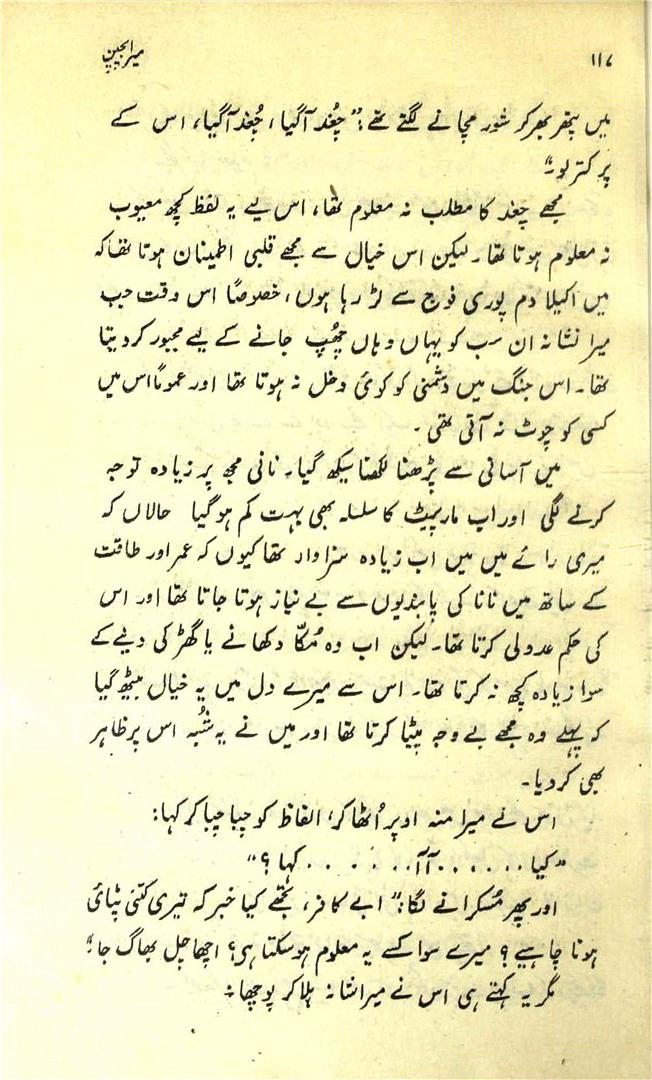 ۱۱۷ میرا بچپن
میں پتھر بھر کر شور مچانے لگتے تھے: "چُغد آگیا، چُغد آگیا، اس کے
پر کتر لو۔"
مجھے چغد کا مطلب نہ معلوم تھا، اس لیے یہ لفظ کچھ معیوب
نہ معلوم ہوتا تھا۔ لیکن اس خیال سے مجھے قلبی اطمینان ہوتا تھا کہ
میں اکیلا دم پوری فوج سے لڑ رہا ہوں، خصوصاً اس وقت جب
میرا نشانہ ان سب کو یہاں وہاں چھُپ جانے کے لیے مجبور کر دیتا
تھا۔ اس جنگ میں دشمنی کو کوئی دخل نہ ہوتا تھا اور عموماً اس میں
کسی کو چوٹ نہ آتی تھی۔
میں آسانی سے پڑھنا لکھنا سیکھ گیا۔ نانی مجھ پر زیادہ توجہ
کرنے لگی اور اب مارپیٹ کا سلسلہ بھی بہت کم ہو گیا حالاں کہ
میری رائے میں میں اب زیادہ سزاوار تھا کیوں کہ عمر اور طاقت
کے ساتھ میں نانا کی پابندیوں سے بے نیاز ہوتا جاتا تھا اور اس
کی حکم عدولی کرتا تھا۔ لیکن اب وہ مُکّا دکھانے یا گھڑکی دینے کے
سوا زیادہ کچھ نہ کرتا تھا۔ اس سے میرے دل میں یہ خیال بیٹھ گیا
کہ پہلے وہ مجھے بے وجہ پیٹا کرتا تھا اور میں نے یہ شُبہ اس پر ظاہر
بھی کر دیا۔
اس نے میرا منہ اوپر اُٹھا کر، الفاظ کو چبا چبا کر کہا:
"کیا ......آآ...... کہا؟"
اور پھر مُسکرانے لگا: "ابے کافر، تجھے کیا خبر کہ تیری کتنی پٹائی
ہونا چاہیے؟ میرے سوا کسے یہ معلوم ہو سکتا ہی؟ اچھا چل بھاگ جا۔"
مگر یہ کہتے ہی اس نے میرا شانہ ہلا کر پوچھا:۔